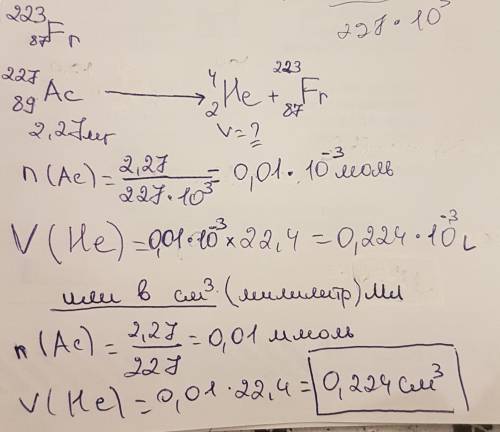 ²²³₈₇Fr
227·10³
²²⁷₈₉Ac ⟶ ⁴₂He + ²²³₈₇Fr
2,27мг V=?
n(Ac) = 2,27 / 227·10³ = 0,01·10⁻³ моль
V(He) = 0,01·10⁻³ × 22,4 = 0,224·10⁻³ L
или в см³ (милилитр) Мл
n(Ac) = 2,27 / 227 = 0,01 ммоль
V(He) = 0,01·22,4 = 0,224 см³